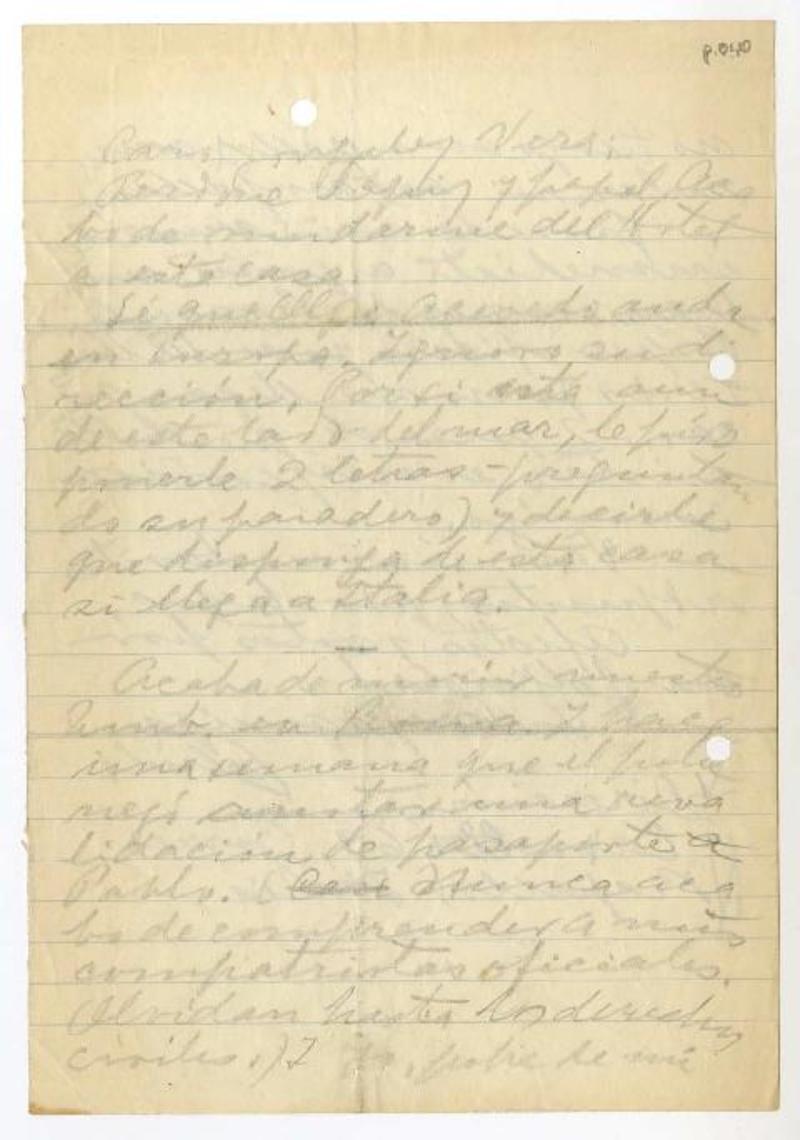 p.040
Vera:
Perdone lápiz y papel. Aca
bo de mudarme del Hotel
a esta casa.
Sé que Olga Acevedo anda
en Europa. Ignoro su di
rección. Por si está aun
de este lado del mar, le pido
ponerle 2 letras - pregunta
do su paradero) y decirle
que disponga de esta casa
si llega a Italia.
—
Acaba de morir nuestro
Emb. en Roma. Y hace
una semana que el pobre
negó una reva
lidación de pasaporte a
Pablo. Nunca aca
bo de comprender a mis
compatriotas oficiales.
Olvidan hasta los derechos
civiles.) Y yo, pobre de mí